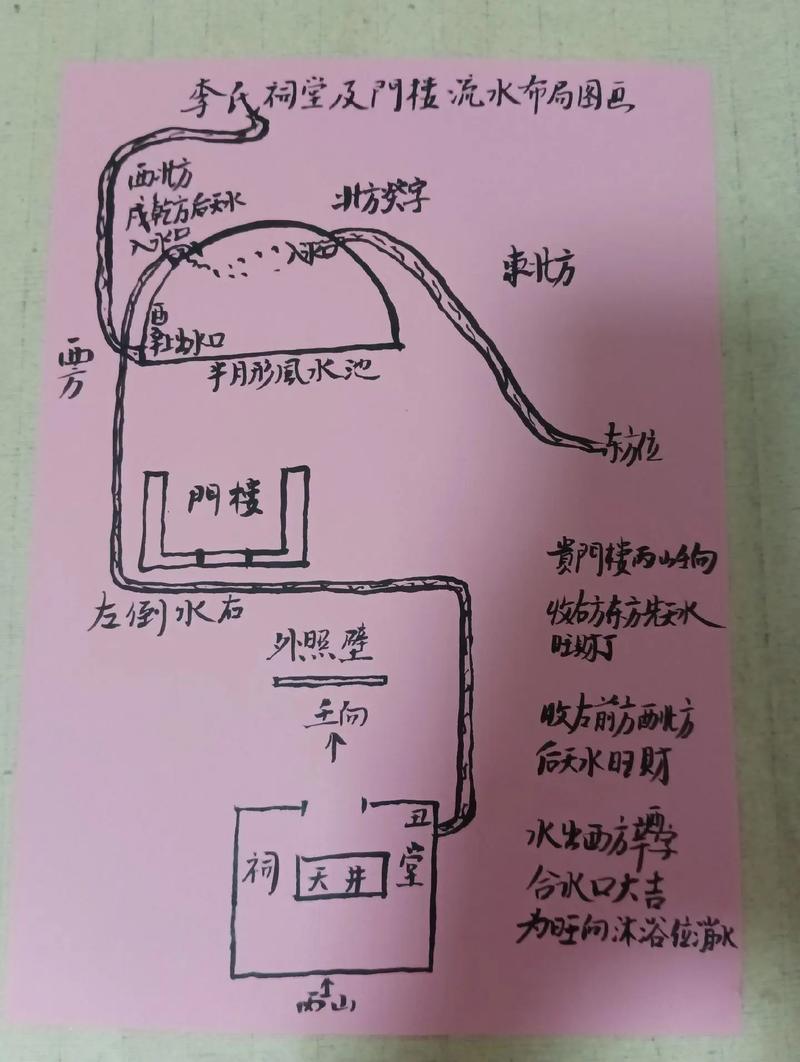 李氏祠堂及門樓流水布局图画
西北方
戌乾方后天水
入水口
北方癸字
入水口
東北方
酉
辛出水口
西方
半月形風水池
东方位
門樓
左倒水右
外照壁
壬向
丑
祠 堂
天井
丙山
貴門樓丙山壬向
收右方东方先天水
旺財丁
收左前方西北方
后天水旺財
水出西方辛酉字
合水口大吉
为旺向沐浴位消水